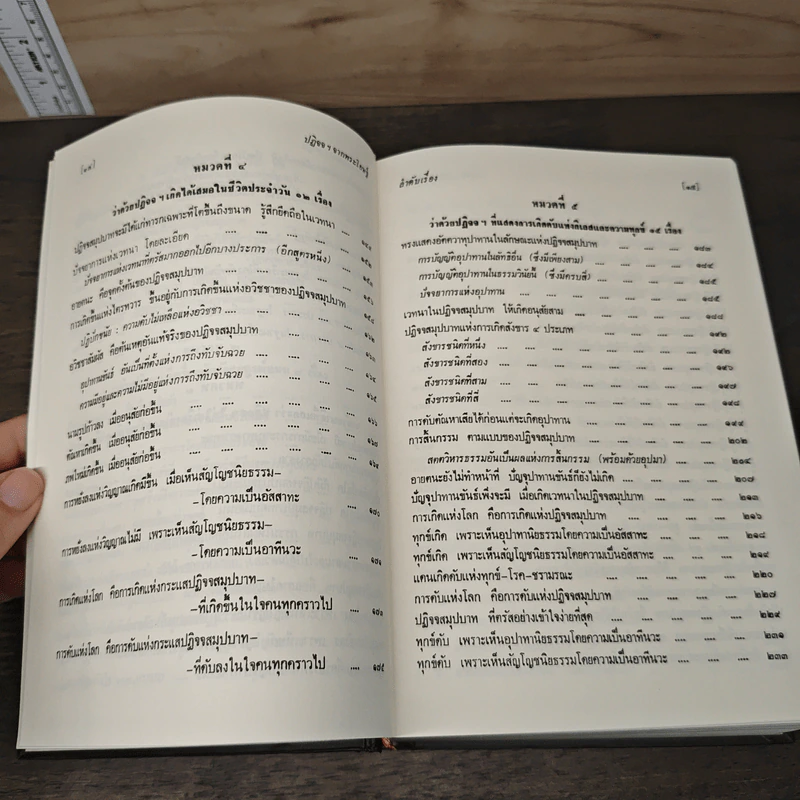 [๑๔]
ปฏิจจ ฯ จากพระโอษฐ์
หมวดที่ ๔
ว่าด้วยปฏิจจ ฯ เกิดได้เสมอในชีวิตประจำวัน ๑๒ เรื่อง
ปฏิจจสมุปบาทจะมีได้แก่ทารกเฉพาะที่โตขึ้นถึงขนาด รู้สึกยึดถือในเวทนา
ปัจจยาการแห่งเวทนา โดยละเอียด .... .... ....
ปัจจยาการแห่งเวทนาที่ตรัสมากออกไปอีกบางประการ (อีกสูตรหนึ่ง) ....
อายตนะ คือจุดตั้งต้นของปฏิจจสมุปบาท .... .... ....
การเกิดขึ้นแห่งไตรทวาร ขึ้นอยู่กับการเกิดขึ้นแห่งอวิชชาของปฏิจจสมุปบาท
ปฏิปักขนัย : ความดับไม่เหลือแห่งอวิชชา .... .... ....
อวิชชาสัมผัส คือต้นเหตุอันแท้จริงของปฏิจจสมุปบาท .... ....
อุปาทานขันธ์ อันเป็นที่ตั้งแห่งการถึงทับจับฉวย .... ....
ความมีอยู่และความไม่มีอยู่แห่งการถึงทับจับฉวย .... ....
นามรูปก้าวลง เมื่ออนุสัยก่อขึ้น .... .... .... ๑๖๖
ตัณหาเกิดขึ้น เมื่ออนุสัยก่อขึ้น .... .... ....
ภพใหม่เกิดขึ้น เมื่ออนุสัยก่อขึ้น .... .... ....
การหยั่งลงแห่งวิญญาณเกิดมีขึ้น เมื่อเห็นสัญโญชนิยธรรม–
–โดยความเป็นอัสสาทะ .... ๑๗๐
การหยั่งลงแห่งวิญญาณไม่มี เพราะเห็นสัญโญชนิยธรรม–
–โดยความเป็นอาทีนวะ ....
การเกิดแห่งโลก คือการเกิดแห่งกระแสปฏิจจสมุปบาท–
–ที่เกิดขึ้นในใจคนทุกคราวไป ....
การดับแห่งโลก คือการดับแห่งกระแสปฏิจจสมุปบาท–
–ที่ดับลงในใจคนทุกคราวไป ....
ลำดับเรื่อง
[๑๕]
หมวดที่ ๕
ว่าด้วยปฏิจจ ฯ ที่แสดงการเกิดดับแห่งกิเลสและความทุกข์ ๑๕ เรื่อง
ทรงแสดงอัตตวาทุปาทานในลักษณะแห่งปฏิจจสมุปบาท .... .... ๑๘๓
การบัญญัติอุปาทานในลัทธิอื่น (ซึ่งมีเพียงสาม) .... .... ๑๘๔
การบัญญัติอุปาทานในธรรมวินัยนี้ (ซึ่งมีครบสี่) .... .... ๑๘๕
ปัจจยาการแห่งอุปาทาน .... .... .... .... ๑๘๕
เวทนาในปฏิจจสมุปบาท ให้เกิดอนุสัยสาม .... .... ....
ปฏิจจสมุปบาทแห่งการเกิดสังขาร ๔ ประเภท .... .... .... ๑๙๒
สังขารชนิดที่หนึ่ง .... .... .... .... ๑๙๒
สังขารชนิดที่สอง .... .... .... .... ๑๙๖
สังขารชนิดที่สาม .... .... .... .... ๑๙๗
สังขารชนิดที่สี่ .... .... .... .... ๑๙๘
การดับตัณหาเสียได้ก่อนแต่จะเกิดอุปาทาน .... .... .... ๑๙๙
การสิ้นกรรม ตามแบบของปฏิจจสมุปบาท .... .... .... ๒๐๒
สตตวิหารธรรมอันเป็นผลแห่งการสิ้นกรรม (พร้อมด้วยอุปมา) ....
อายตนะยังไม่ทำหน้าที่ ปัญจุปาทานขันธ์ก็ยังไม่เกิด .... .... ๒๐๗
ปัญจุปาทานขันธ์เพิ่งจะมี เมื่อเกิดเวทนาในปฏิจจสมุปบาท .... .... ๒๑๓
การเกิดแห่งโลก คือการเกิดแห่งปฏิจจสมุปบาท .... .... .... ๒๑๖
ทุกข์เกิด เพราะเห็นอุปาทานิยธรรมโดยความเป็นอัสสาทะ .... .... ๒๑๘
ทุกข์เกิด เพราะเห็นสัญโญชนิยธรรมโดยความเป็นอัสสาทะ .... .... ๒๑๙
แดนเกิดดับแห่งทุกข์–โรค–ชรามรณะ .... .... .... .... ๒๒๐
การดับแห่งโลก คือการดับแห่งปฏิจจสมุปบาท .... .... .... ๒๒๗
ปฏิจจสมุปบาท ที่ตรัสอย่างเข้าใจง่ายที่สุด .... .... .... ๒๒๙
ทุกข์ดับ เพราะเห็นอุปาทานิยธรรมโดยความเป็นอาทีนวะ .... .... ๒๓๑
ทุกข์ดับ เพราะเห็นสัญโญชนิยธรรมโดยความเป็นอาทีนวะ .... .... ๒๓๓